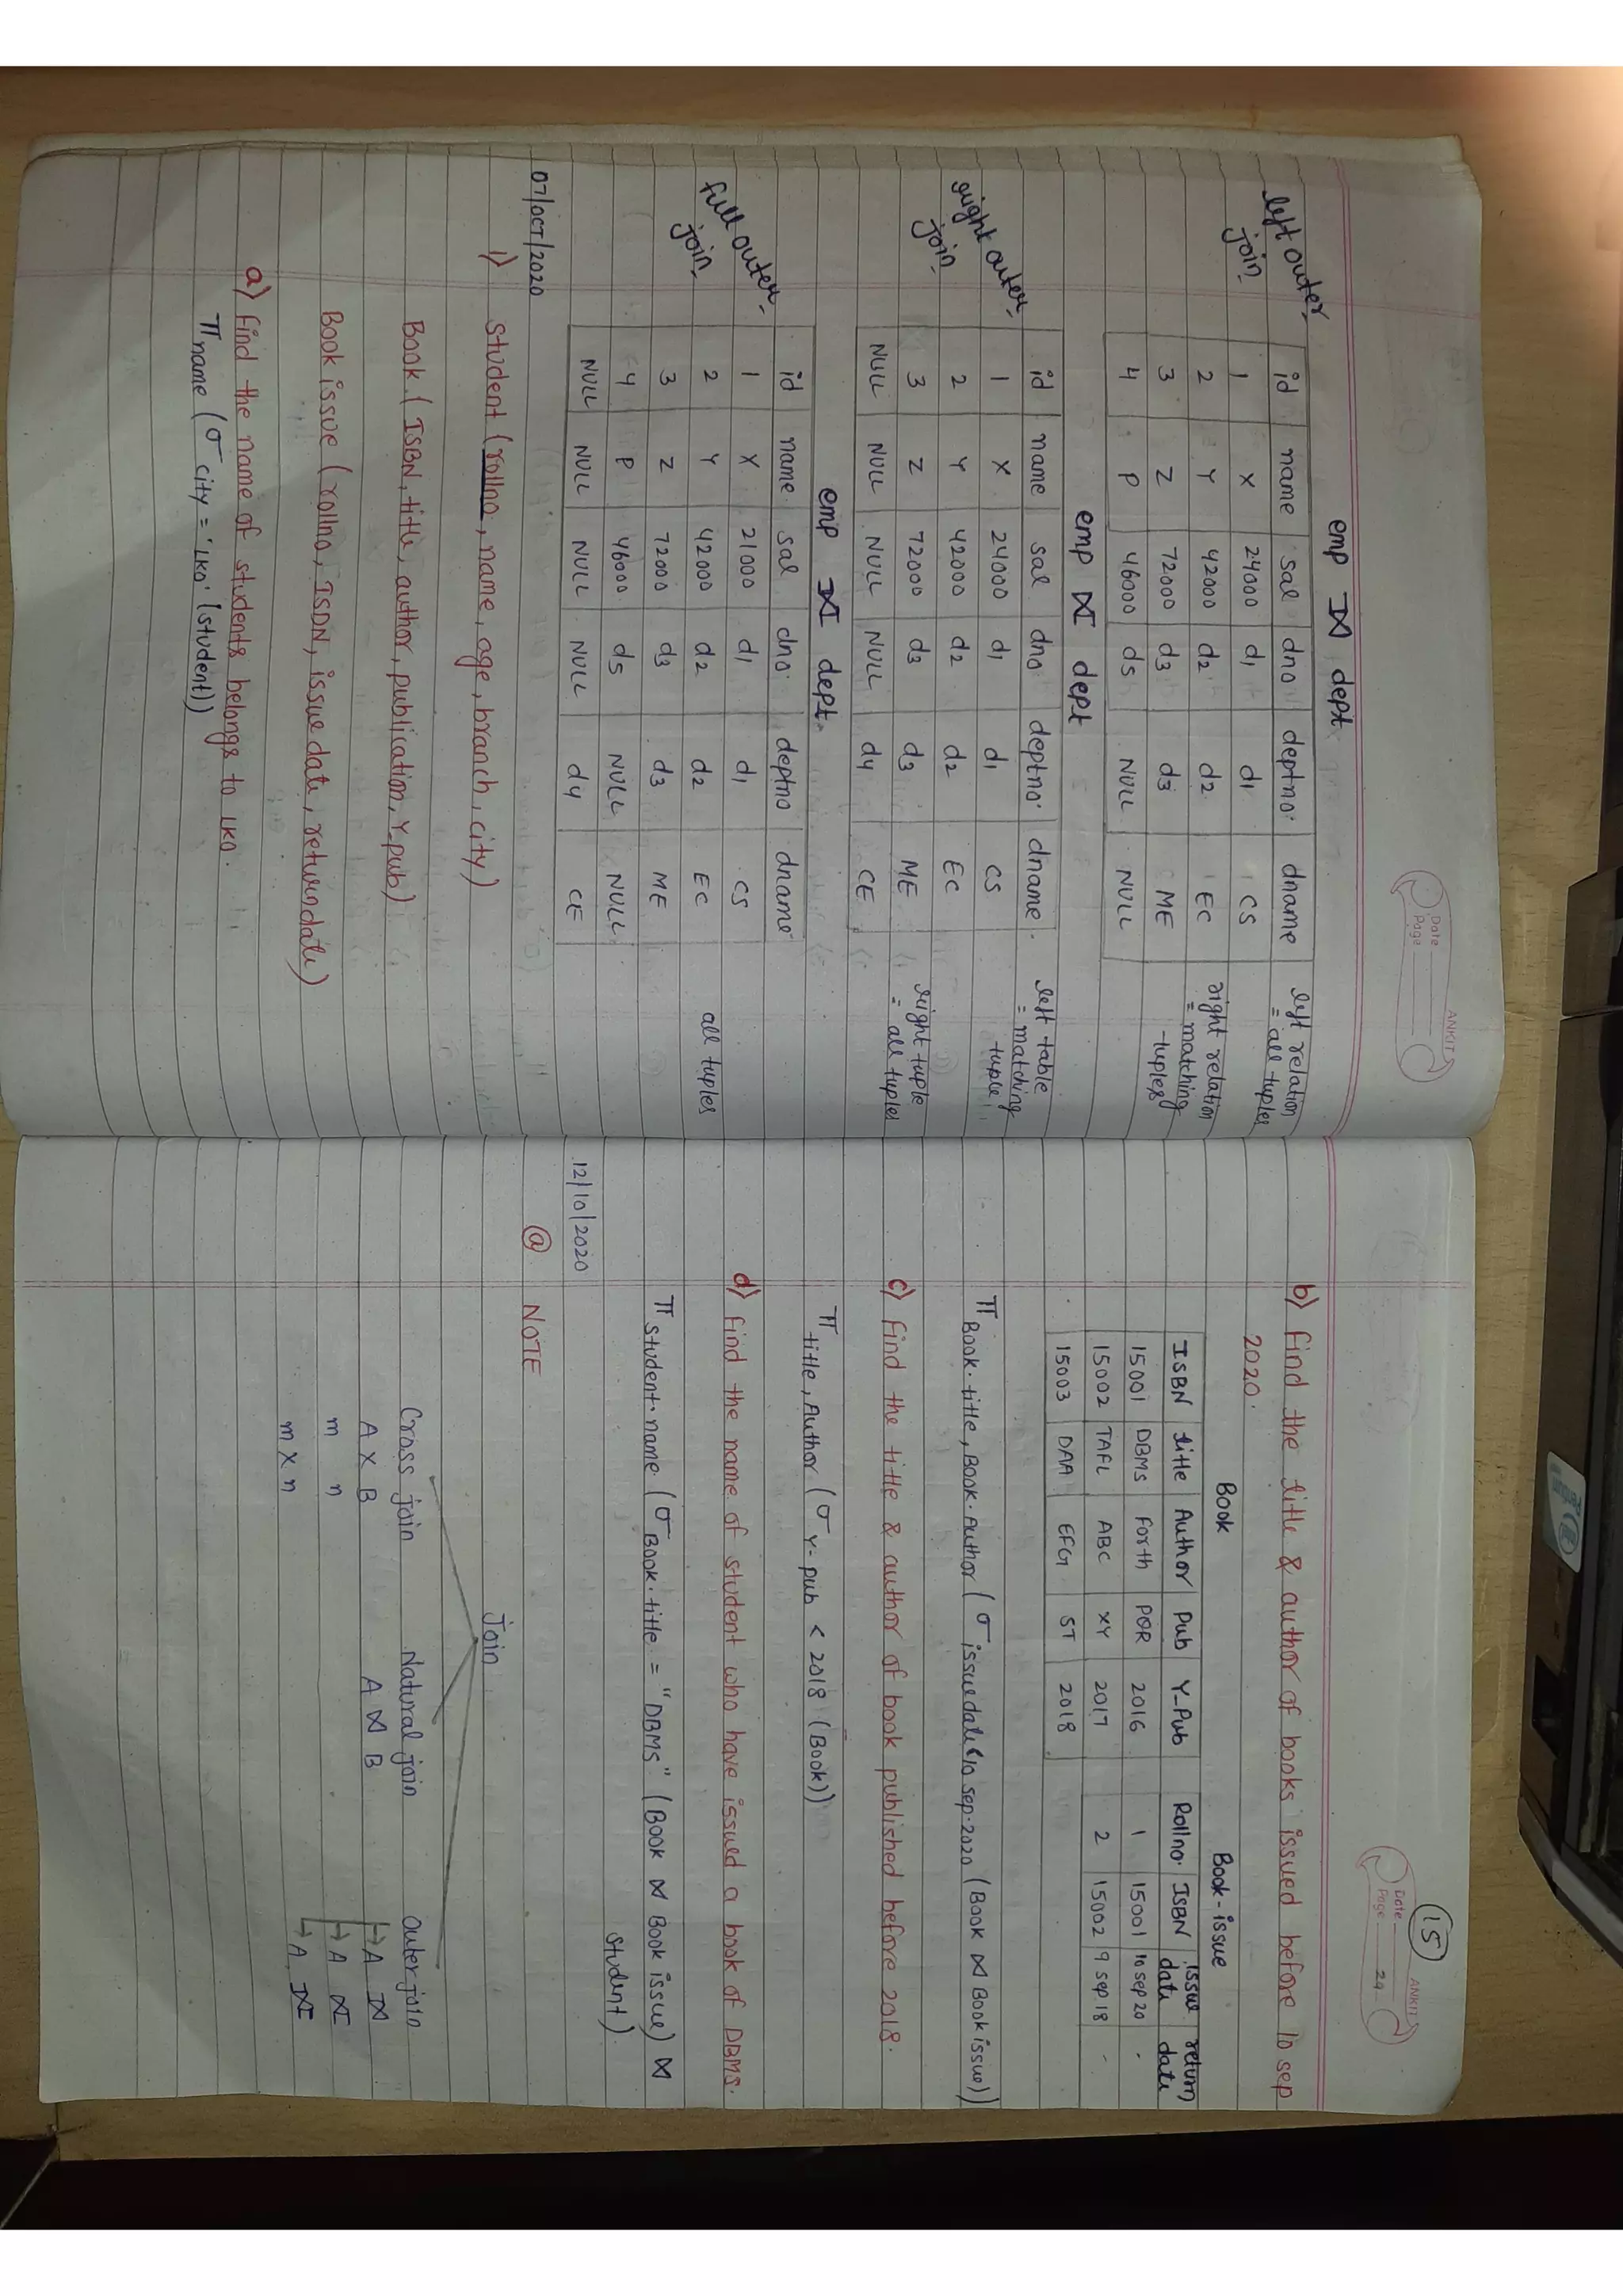 ANKIT
Date
Page
emp ⟕ dept
left outer
join
id name sal dno deptno. dname
1 X 24000 d1 d1 CS
2 Y 42000 d2 d2 EC
3 Z 72000 d3 d3 ME
4 P 46000 d5 NULL NULL
left relation
= all tuples
right relation
= matching
-tuples
emp ⟖ dept
right outer
join
id name sal dno deptno. dname.
1 X 24000 d1 d1 CS
2 Y 42000 d2 d2 EC
3 Z 72000 d3 d3 ME
NULL NULL NULL NULL d4 CE
left table
= matching
-tuple
right tuple
= all tuples
emp ⟗ dept.
full outer
join
id name. sal dno. deptno dname
1 X 21000 d1 d1 CS
2 Y 42000 d2 d2 EC
3 Z 72000 d3 d3 ME
4 P 46000 d5 NULL NULL
NULL NULL NULL NULL d4 CE
all tuples
07/OCT/2020
1) student (rollno, name, age, branch, city)
Book (ISBN, title, author, publication, Y-pub)
Book issue (rollno, ISDN, issue date, return date)
a) find the name of students belongs to LKO.
π name (σ city = 'LKO' (student))
15
ANKIT
Date
Page 24
b) find the title & author of books issued before 10 sep
2020.
Book
ISBN title Author Pub Y-Pub
15001 DBMS forth PQR 2016
15002 TAFL ABC XY 2017
15003 DAA EFG ST 2018
Book-issue
Rollno. ISBN issue date return date
1 15001 10 sep 20 -
2 15002 9 sep 18 -
π Book.title, Book.Author (σ issuedate<10 sep.2020 (Book ⋈ Book issue))
c) find the title & author of book published before 2018.
π title, Author (σ Y-pub < 2018 (Book))
d) find the name of student who have issued a book of DBMS.
π student.name (σ Book.title = "DBMS" (Book ⋈ Book issue) ⋈
student).
12/10/2020
@ NOTE
Join
Cross join Natural join Outer join
A X B A ⋈ B → A ⟕
m n → A ⟖
m X n → A ⟗